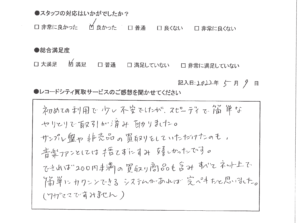 ●スタッフの対応はいかがでしたか?
□ 非常に良かった □ 良かった □ 普通 □ 良くない □ 非常に良くない
●総合満足度
□ 大満足 □ 満足 □ 普通 □ 満足していない □ 非常に満足していない
記入日 2022年 5月 9日
●レコードシティ買取サービスのご感想を聞かせてください
初めての利用で少し不安でしたが、スピーディで簡単な
やりとりで取引が済み助かりました。
サンプル盤や非売品の買取りをしていただけたのも、
音楽ファンとしては捨てずにすみ嬉しかったです。
できれば200円未満の買取り商品も含めすべてネット上で
簡単に できるシステムがあれば 完ぺきだと思いました。
(ワガママですみません)